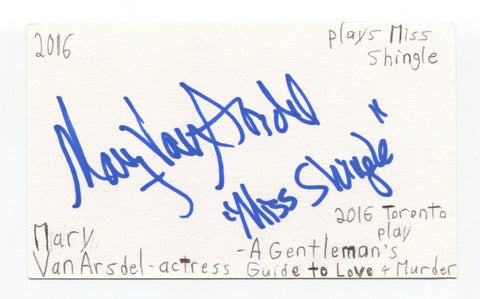 2016
plays Miss
Shingle
Mary Van Arsdel
"Miss Shingle"
2016 Toronto
play
Mary
Van Arsdel - actress
- A Gentleman's
Guide to Love + Murder